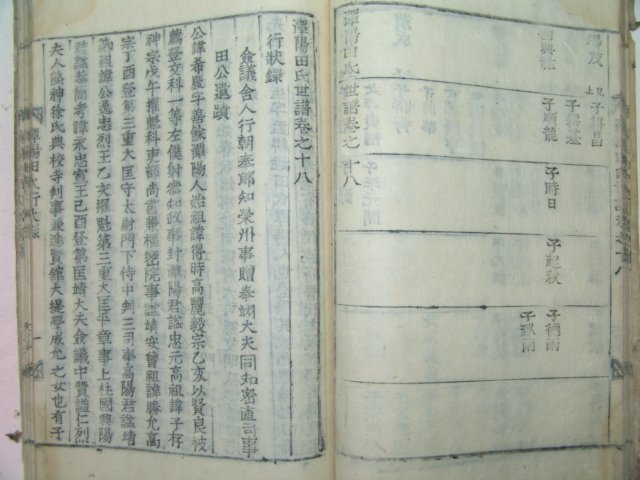 見上
子輝昌
子舜龍
子時日
子起秋
子德雨
子致雨
潭陽田氏世譜卷之十八
行狀錄
僉議舍人行朝奉郎知榮州事贈奉翊大夫同知密直司事
田公遺蹟
公諱希慶字善餘潭陽人始祖諱得時高麗毅宗乙亥以賢良被
薦登文科一等左僕射叅知政事封潭陽君諡忠元高祖諱子存
神宗戊午擢魁科吏部尙書兼樞密院事諡靖安曾祖諱勝允高
宗丁酉登第三重大匡守太尉門下侍中判三司事高陽君諡靖
毅祖諱公逸忠烈王乙亥擢魁第三重大匡平章事上柱國興陽
君諡恭簡考諱永忠宣王己酉登第匡靖大夫僉議中贊諡仁烈
夫人諡神徐氏典校寺判事兼進賢館大提學成允之女也有子
潭陽田氏行狀錄
一